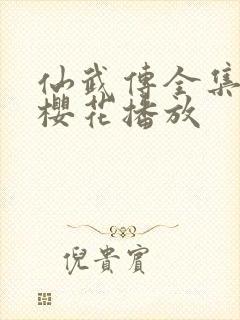 仙武傳全集
櫻花播放
倪貴賓